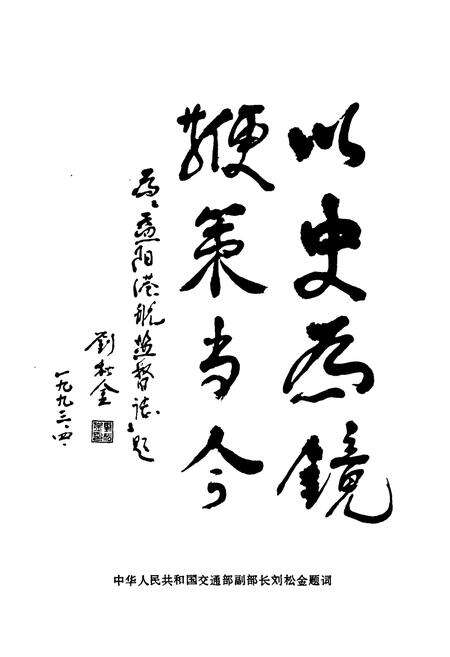 以史为镜
鞭策当今
为《益阳港航监督志》题
劉松金
一九九三·四·
中华人民共和国交通部副部长刘松金题词